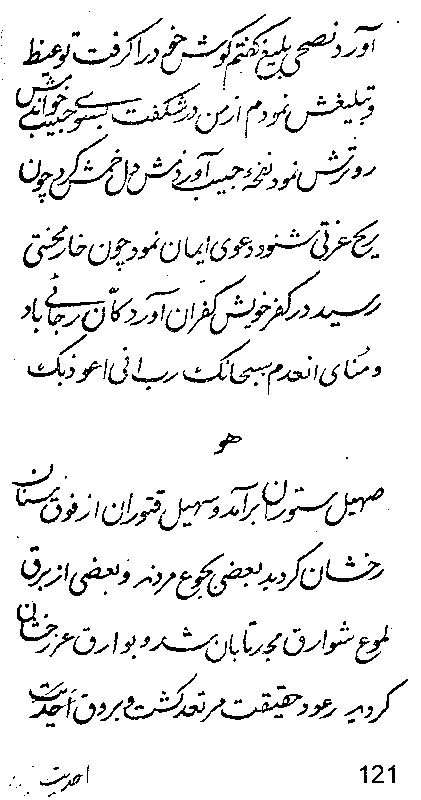 آورد نصحی بلیغ گفتم گوش خود را گرفت توعیظ
و تبلیغش نمودم از من در شگفت بسوی حبیب خواندمش
رو ترش نمود نفحهٔ حبیب آوردمش دل خمش کرد چون
ریح عزتی شنود دعوی ایمان نمود چون خار محنتی
رسید در کفر خویش کفران آورد کأن رجائی باد
و منای انعدم سبحانک رب انی اعوذ بک
هو
صهیل ستوران برآمد و سهیل از فوق بستان
رخشان گردید بعضی بجوع مردند و بعضی از برق
لموع شوارق مجد تابان شد و بوارق عز رخشان
گردید رعود حقیقت مرتعد گشت و بروق احدیت
احدیت
121